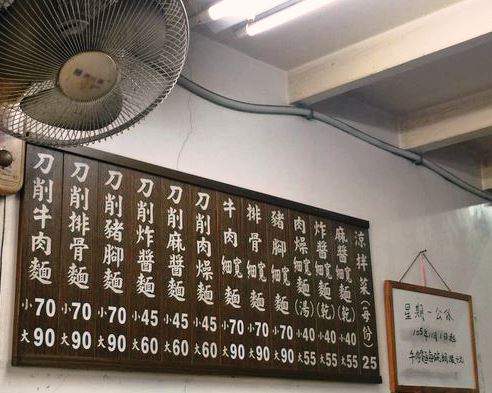 刀削牛肉麵 小70 大90
刀削排骨麵 小70 大90
刀削豬腳麵 小70 大90
刀削炸醬麵 小45 大60
刀削麻醬麵 小45 大60
刀削肉燥麵 小45 大60
牛肉細寬麵 小70 大90
排骨細寬麵 小70 大90
豬腳細寬麵 小70 大90
肉燥細寬麵(湯) 小40 大55
炸醬細寬麵(乾) 小40 大55
麻醬細寬麵(乾) 小40 大55
涼拌菜(每份) 25
星期一公休
105年11月1日起